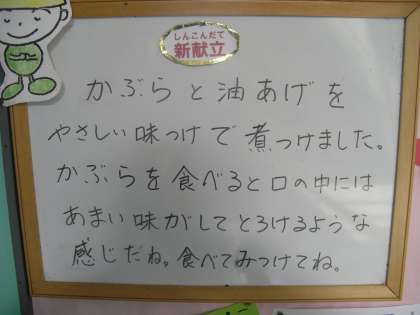 しんこんだて
新献立
かぶらと油あげを
やさしい味つけで煮つけました。
かぶらを食べると口の中には
あまい味がしてとろけるような
感じだね。食べてみつけてね。